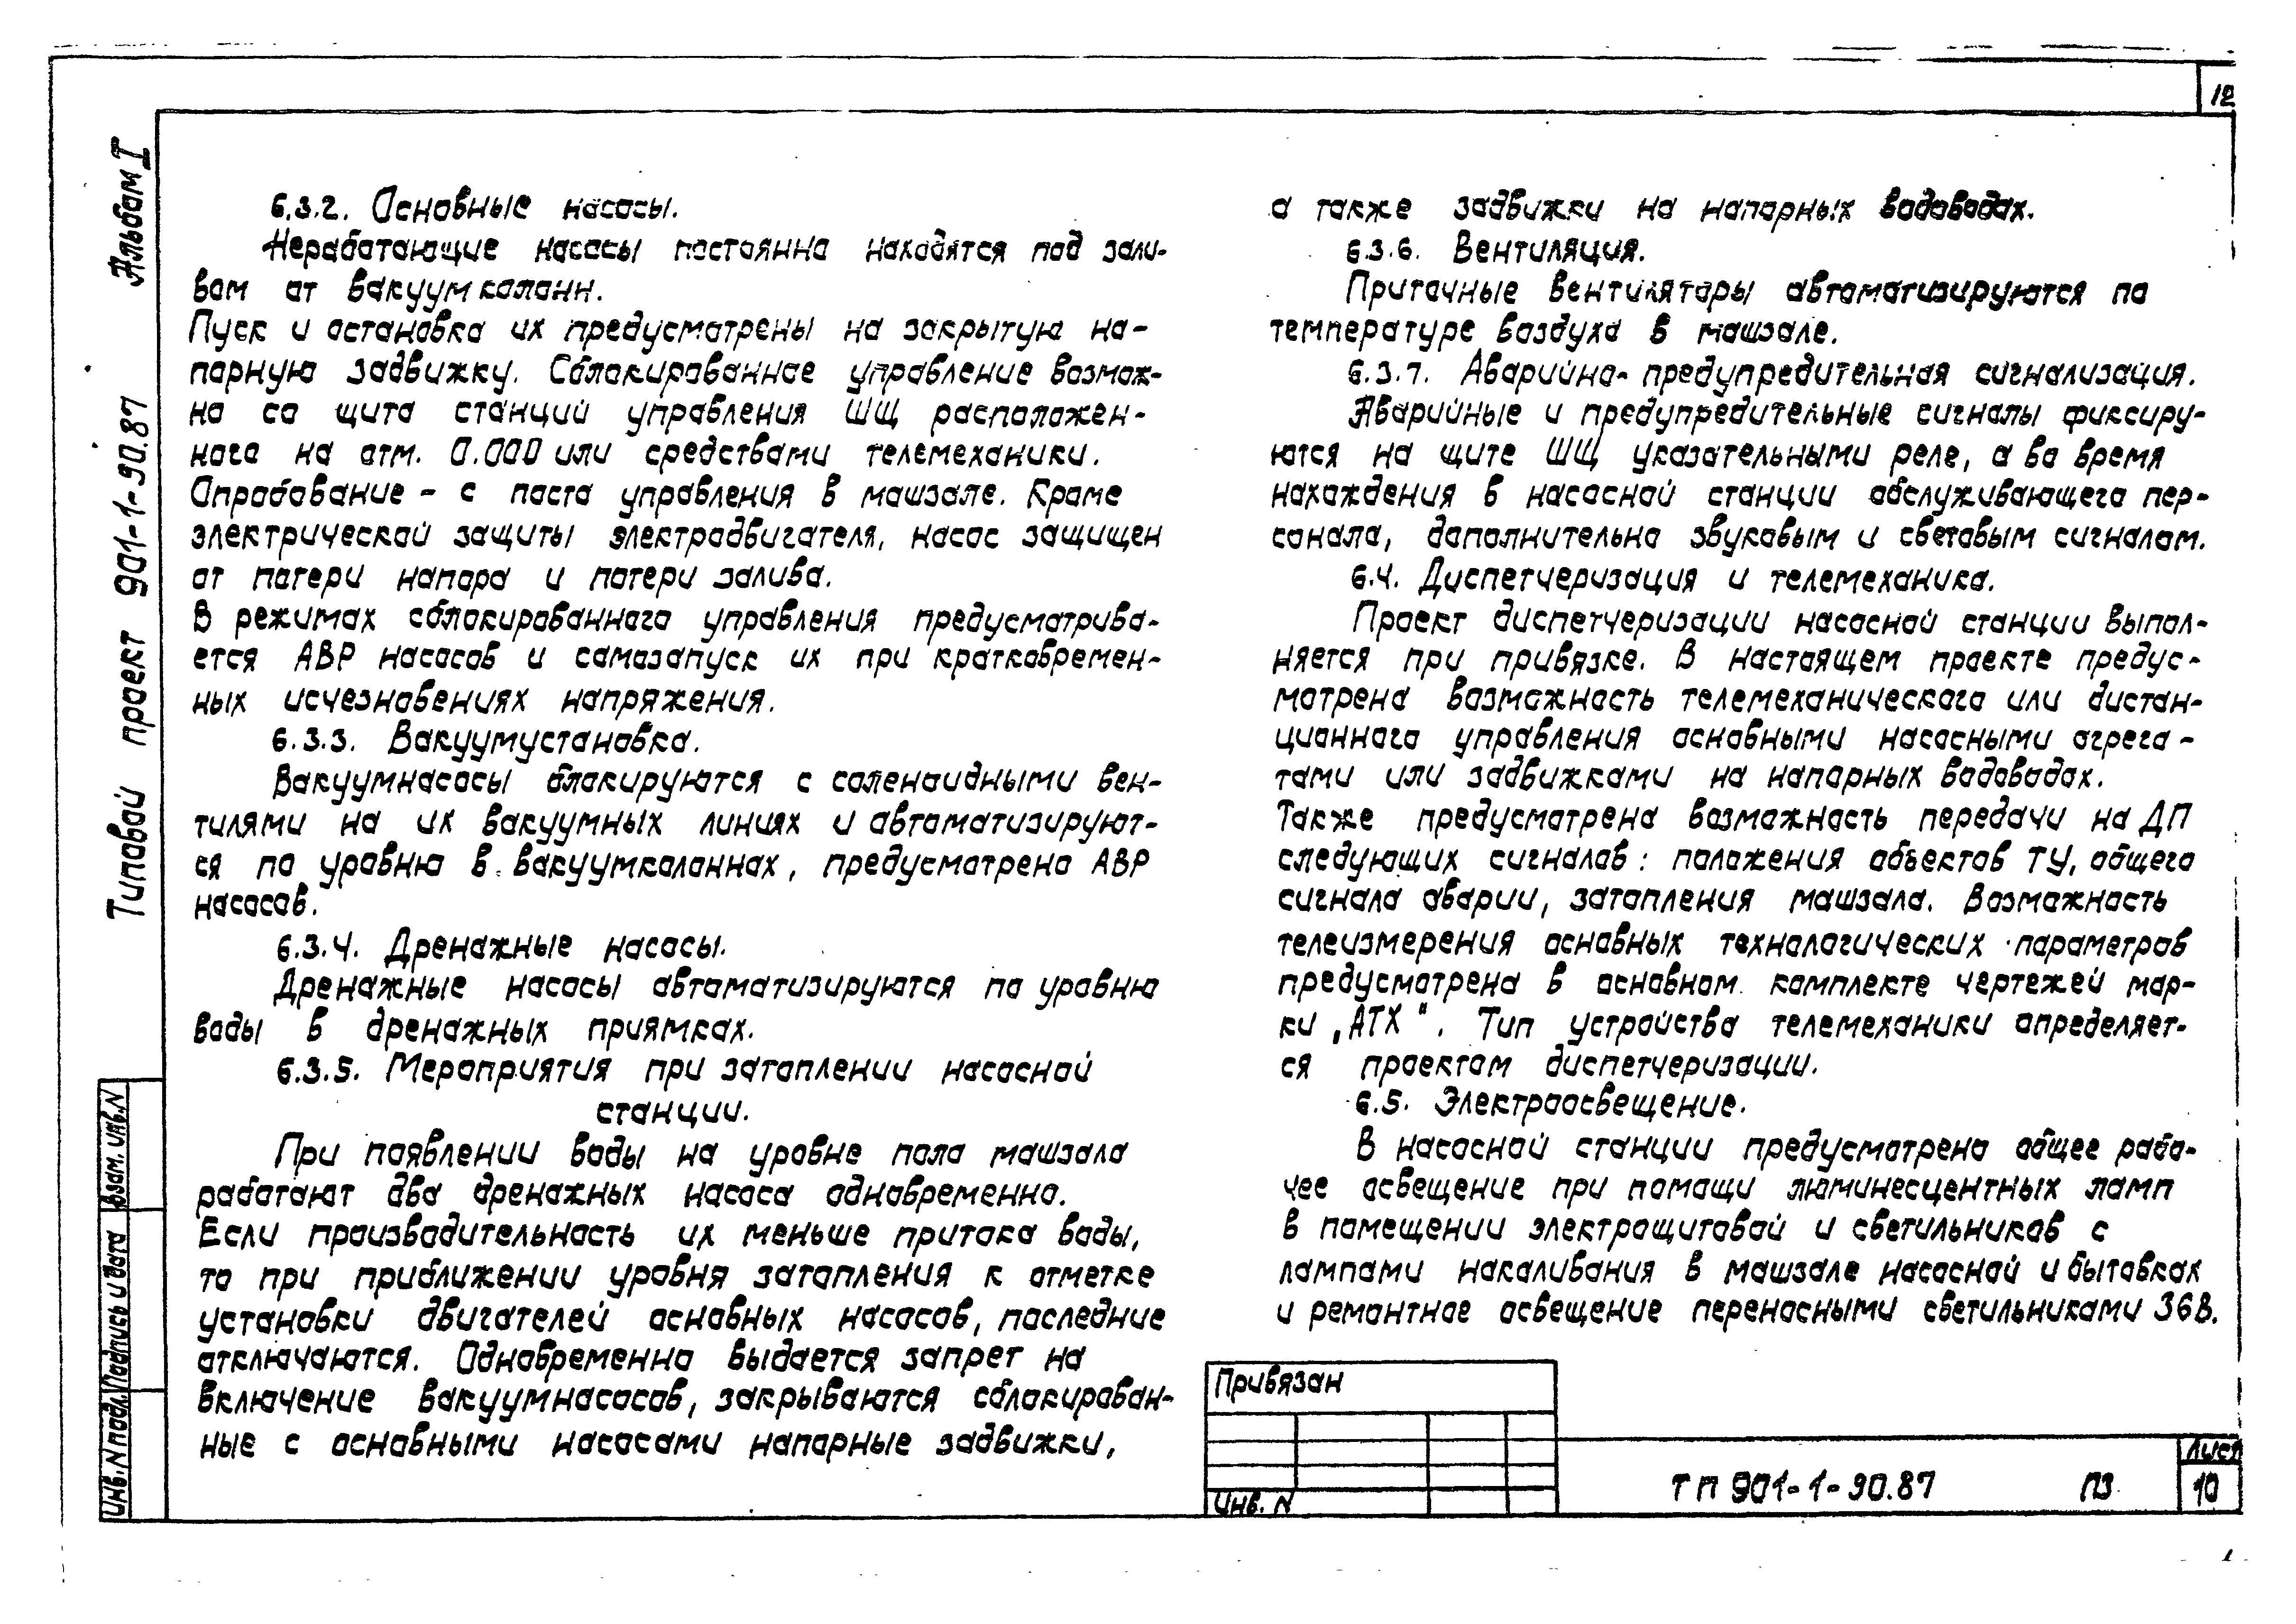 12
Альбом I
Типовой проект 901-1-90.87
6.3.2. Основные насосы.
Неработающие насосы постоянно находятся под зали-
вом от вакуумколонн.
Пуск и остановка их предусмотрены на закрытую на-
порную задвижку. Сблокированное управление возмож-
но со щита станций управления ШЩ расположен-
ного на отм. 0.000 или средствами телемеханики.
Опробование - с поста управления в машзале. Кроме
электрической защиты электродвигателя, насос защищен
от потери напора и потери залива.
В режимах сблокированного управления предусматрива-
ется АВР насосов и самозапуск их при кратковремен-
ных исчезновениях напряжения.
6.3.3. Вакуумустановка.
Вакуумнасосы блокируются с соленоидными вен-
тилями на их вакуумных линиях и автоматизируют-
ся по уровню в вакуумколоннах, предусмотрено АВР
насосов.
6.3.4. Дренажные насосы.
Дренажные насосы автоматизируются по уровню
воды в дренажных приямках.
6.3.5. Мероприятия при затоплении насосной
станции.
При появлении воды на уровне пола машзала
работают два дренажных насоса одновременно.
Если производительность их меньше притока воды,
то при приближении уровня затопления к отметке
установки двигателей основных насосов, последние
отключаются. Одновременно выдается запрет на
включение вакуумнасосов, закрываются сблокирован-
ные с основными насосами напорные задвижки,
а также задвижки на напорных водоводах.
6.3.6. Вентиляция.
Приточные вентиляторы автоматизируются по
температуре воздуха в машзале.
6.3.7. Аварийно-предупредительная сигнализация.
Аварийные и предупредительные сигналы фиксиру-
ются на щите ШЩ указательными реле, а во время
нахождения в насосной станции обслуживающего пер-
сонала, дополнительно звуковым и световым сигналом.
6.4. Диспетчеризация и телемеханика.
Проект диспетчеризации насосной станции выпол-
няется при привязке. В настоящем проекте предус-
мотрена возможность телемеханического или дистан-
ционного управления основными насосными агрега-
тами или задвижками на напорных водоводах.
Также предусмотрена возможность передачи на ДП
следующих сигналов: положения объектов ТУ, общего
сигнала аварии, затопления машзала. Возможность
телеизмерения основных технологических параметров
предусмотрена в основном комплекте чертежей мар-
ки „АТХ". Тип устройства телемеханики определяет-
ся проектом диспетчеризации.
6.5. Электроосвещение.
В насосной станции предусмотрено общее рабо-
чее освещение при помощи люминесцентных ламп
в помещении электрощитовой и светильников с
лампами накаливания в машзале насосной и бытовках
и ремонтное освещение переносными светильниками 36В.
Инв. N подл. Подпись и дата Взам. инв. N
Привязан
Инв. N
ТП 901-1-90.87 ПЗ
Лист
10